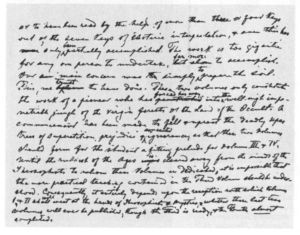 or to have been read by the help of more than three or four Keys
out of the Seven Keys of Esoteric interpretation, & even this has
been only partially accomplished. The work is too gigantic
for any one person to undertake, far more to accomplish.
Our main concern was simply to prepare the soil.
This, we trust to have done. These two volumes only constitute
the work of a pioneer who has forced his way into the well-nigh impe-
netrable jungle of the virgin forests of the land of the Occult. A
commencement has been made to fell & uproot the deadly upas
trees of superstition, prejudice & ignorance, so that these two volumes
should form for the student a fitting prelude for Volumes III & IV.
Until the rubbish of the Ages is cleared away from the minds of the
Theosophists to whom these Volumes are dedicated, it is impossible that
the more practical teaching contained in the Third Volume should be under-
stood. Consequently, it entirely depends upon the reception with which Volumes
I & II shall meet at the hands of Theosophists & Mystics, whether these last two
volumes will ever be published, though the third is ready, & the fourth almost
completed.